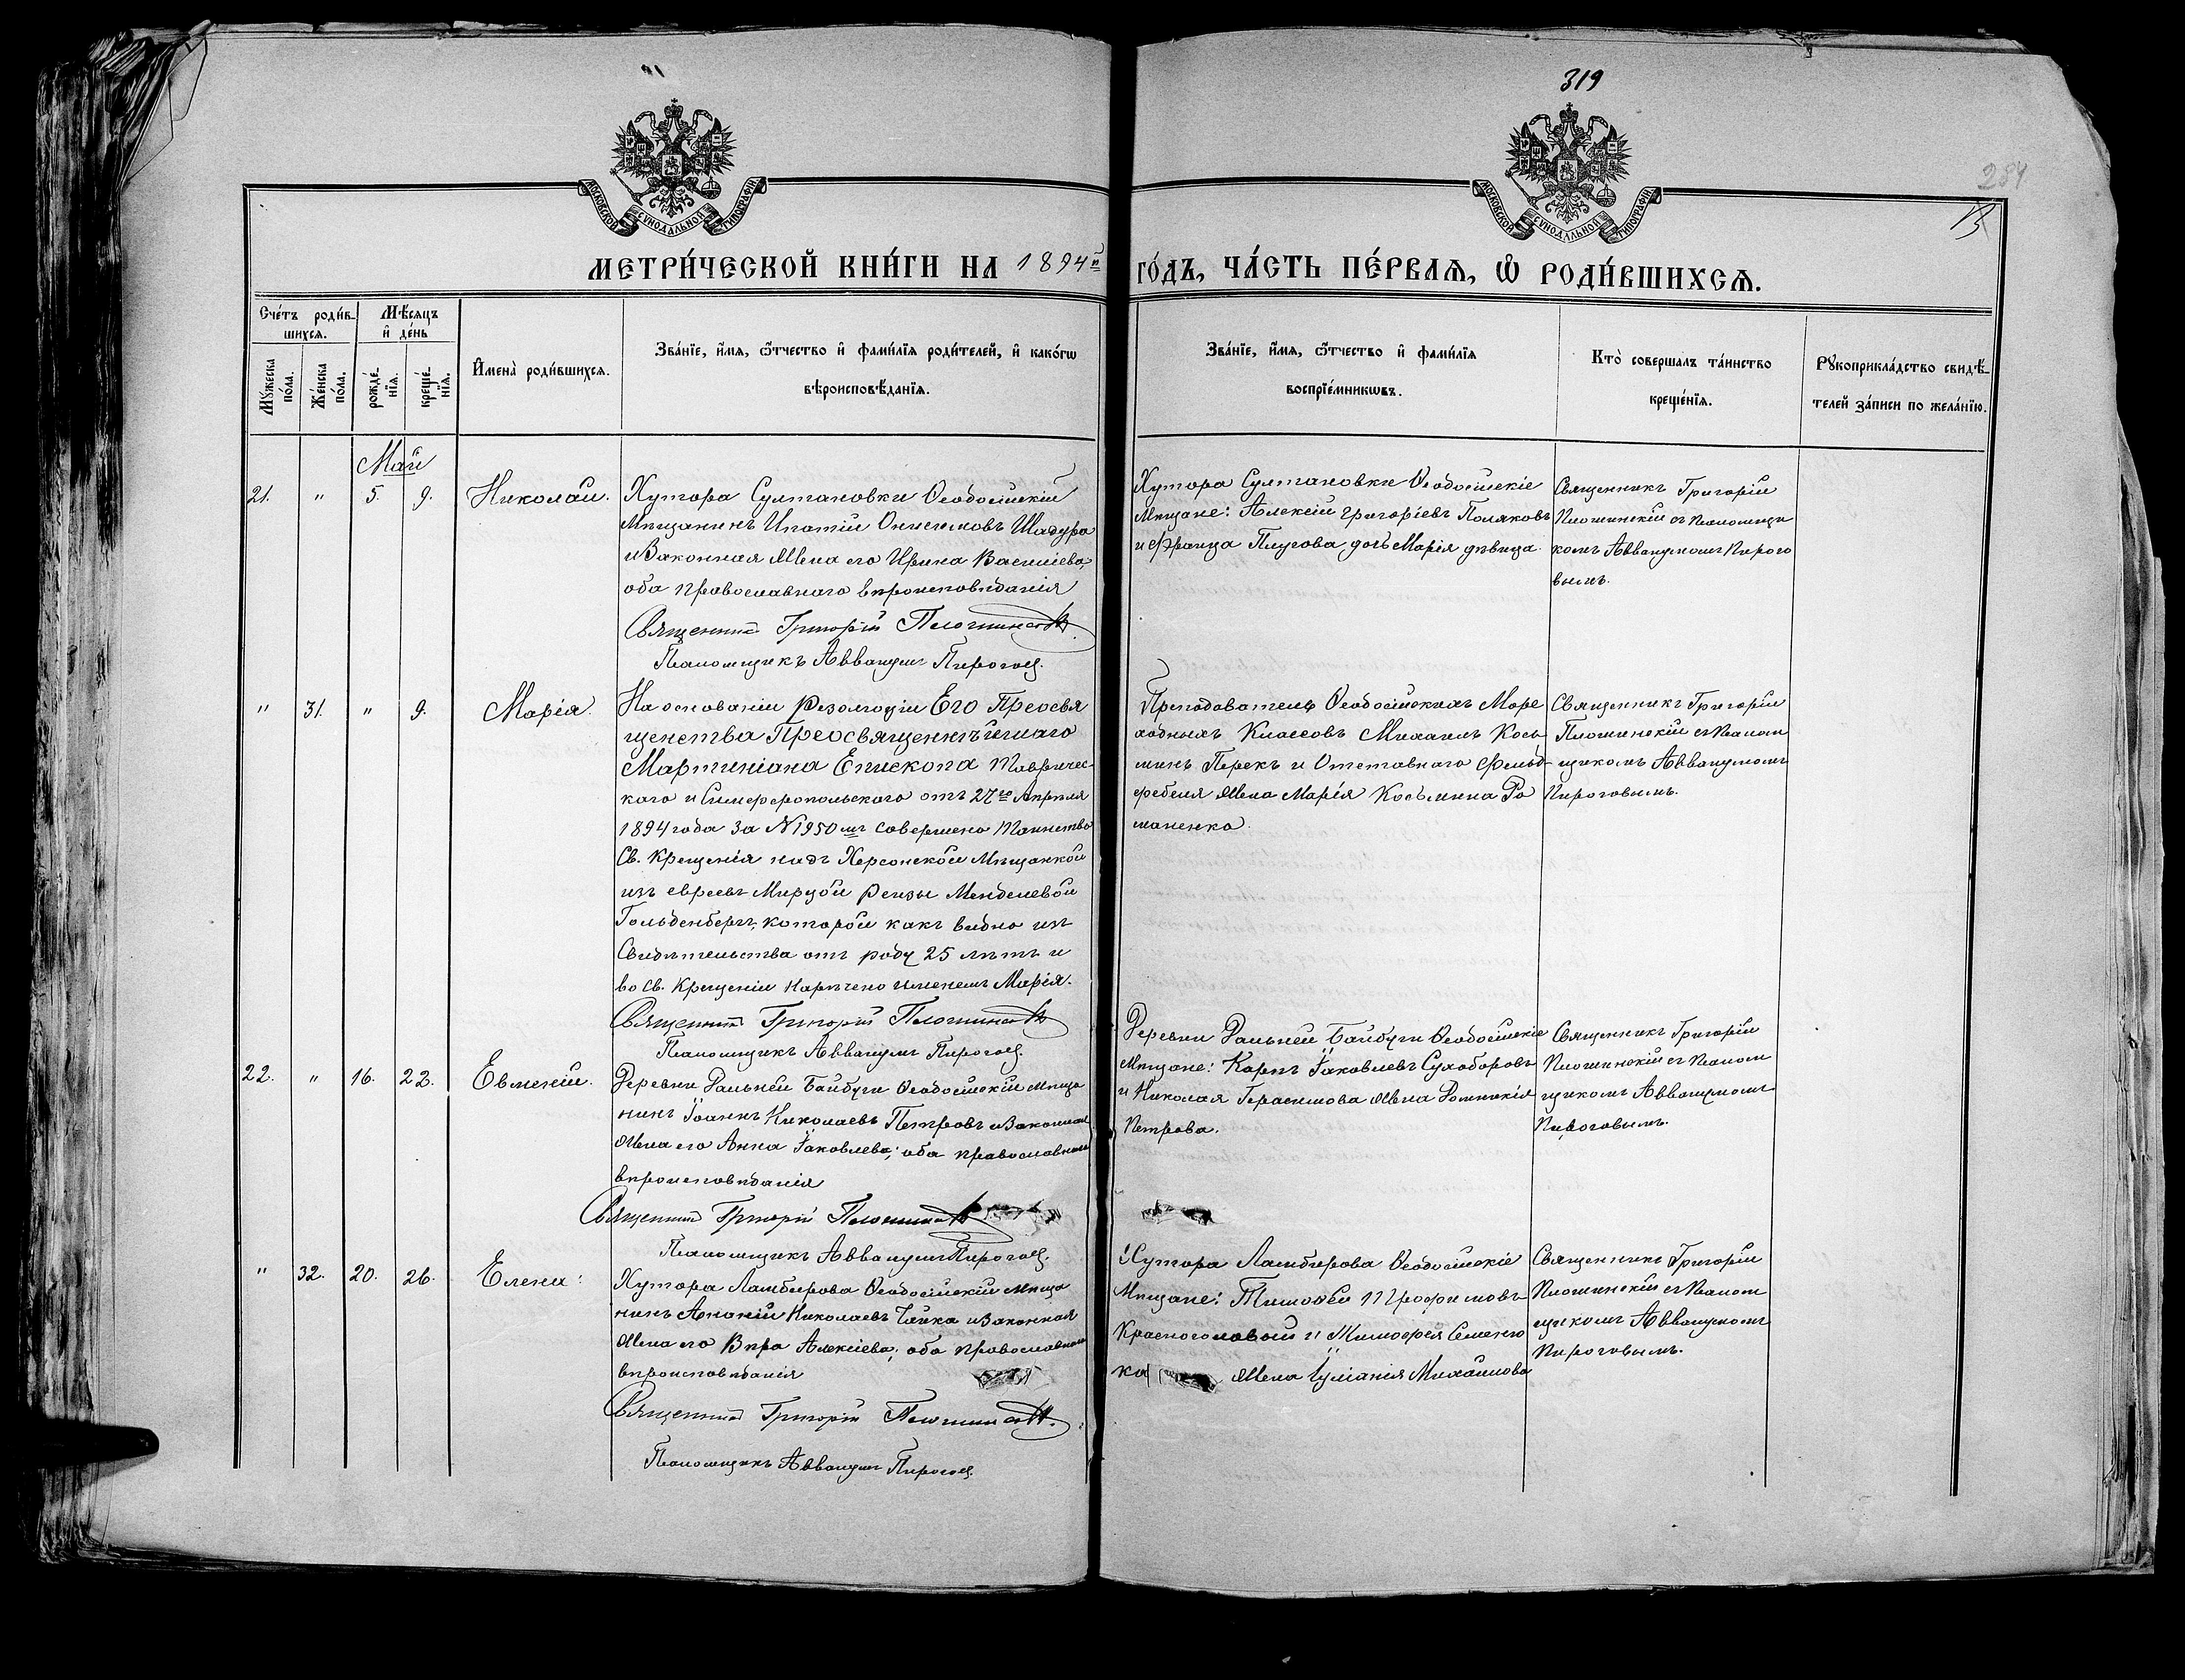 319
284
МОСКОВСКОЙ СѴНОДАЛЬНОЙ ТИПОГРАФІИ
МОСКОВСКОЙ СѴНОДАЛЬНОЙ ТИПОГРАФІИ
МЕТРИ́ЧЕСКОЙ КНИ́ГИ НА 1894й ГО́ДЪ, ЧА́СТЬ ПЕ́РВАѦ, Ѡ҆ РОДИ́ВШИХСѦ.
Сче́тъ роди́в-
шихсѧ.
Мѣ́сяцъ
и҆ де́нь
Мꙋ́жеска
по́ла.
Же́нска
по́ла.
рожде́-
нїѧ.
креще́-
нїѧ.
И҆мена̀ роди́вшихсѧ.
Зва́нїе, и҆́мѧ, ѻ҆́тчество и҆ фами́лїѧ роди́телей, и҆ како́гѡ
вѣроисповѣ́данїѧ.
Зва́нїе, и҆́мѧ, ѻ҆́тчество и҆ фами́лїѧ
воспрїе́мникѡвъ.
Кто̀ соверша́лъ та́инство
креще́нїѧ.
Рꙋкоприкла́дство свидѣ́-
телей за́писи по жела́нїю.
Май
21. " 5. 9. Николай.
Хутора Султановки Ѳеодосійскій
Мѣщанинъ Ипатій Онисимовъ Шадура
и Законная Жена его Ирина Василіева,
оба православнаго вѣроисповѣданія
Священникъ Григорій Плошинскій
Псаломщикъ Аввакумъ Пироговъ.
Хутора Султановки Ѳеодосійскіе
Мѣщане: Алексій Григоріевъ Поляковъ
и Франца Плугова дочь Марія дѣвица.
Священникъ Григорій
Плошинскій съ Псаломщи
комъ Аввакумомъ Пирого
вымъ.
" 31. " 9. Марія.
На основаніи Резолюціи Его Преосвя
щенства Преосвященнѣйшаго
Мартиніана Епископа Тавричес-
кого и Симферопольскаго отъ 27го Апрѣля
1894 года за № 1950мъ совершено Таинство
Св. Крещенія надъ Херсонской Мѣщанкой
изъ евреевъ Мирцой Рейзы Менделевой
Гольденбергъ, которой какъ видно изъ
Свидѣтельства отъ роду 25 лѣтъ и
во Св. Крещеніи наречено именемъ Марія.
Священникъ Григорій Плошинскій
Псаломщикъ Аввакумъ Пироговъ.
Преподователь Ѳеодосійскихъ Море
ходныхъ Классовъ Михаилъ Кось-
минъ Перекъ и Отставного Фельд-
фебеля Жена Марія Косьмина Ро
маненко.
Священникъ Григорій
Плошинскій съ Псалом
щикомъ Аввакумомъ
Пироговымъ.
22. " 16. 22. Евменій.
Деревни Дальней Байбуги Ѳеодосійскій Мѣща
нинъ Іоаннъ Николаевъ Петровъ и Законная
Жена его Анна Іаковлева; оба православнаго
вѣроисповѣданія
Священникъ Григорій Плошинскій
Псаломщикъ Аввакумъ Пироговъ.
Деревни Дальней Байбуги Ѳеодосійскіе
Мѣщане: Карпъ Іаковлевъ Сухоборовъ
и Николая Герасимова Жена Домникія
Петрова.
Священникъ Григорій
Плошинскій съ Псалом
щикомъ Аввакумомъ
Пироговымъ.
" 32. 20. 26. Елена.
Хутора Ламбирова Ѳеодосійскій Мѣща
нинъ Ананій Николаевъ Чайка и Законная
Жена его Вѣра Алексіева; оба православнаго
вѣроисповѣданія
Священникъ Григорій Плошинскій.
Псаломщикъ Аввакумъ Пироговъ.
Хутора Ламбирова Ѳеодосійскіе
Мѣщане: Тимоѳей Трофимовъ
Красноголовый и Тимофея Семенко
ка Жена Іуліанія Михайлова
Священникъ Григорій
Плошинскій съ Псалом
щикомъ Аввакумомъ
Пироговымъ.